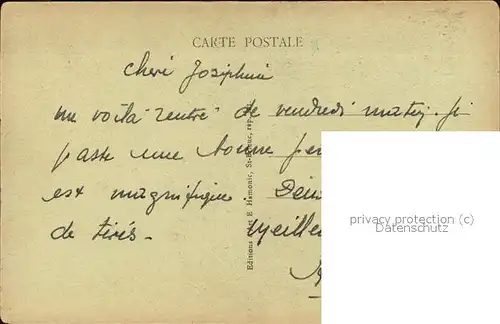 CARTE POSTALE
Cheri Josephine
me voilà rentré de vendredi matin. Je
passe une bonne
est magnifique.
de tirés -
Editions d'Art E. Hamonic, St-Brieuc
privacy protection (c)
Datenschutz